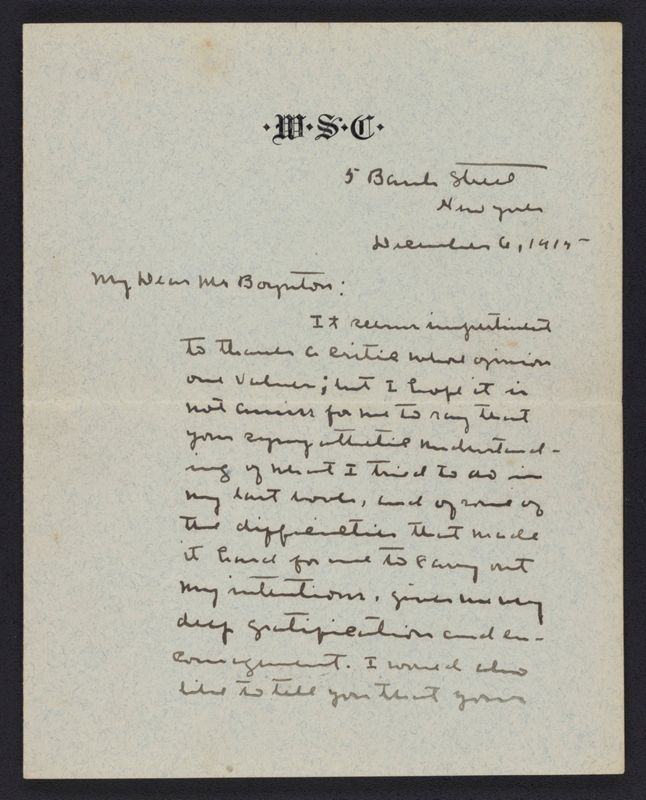 ·W·S·C·
5 Bank Street
New York
December 6, 1915
My Dear Mr Boynton:
It seems impertinent
to thank a critic whose opinion
one values; but I hope it is
not amiss for me to say that
your sympathetic understand-
ing of what I tried to do in
my last book, and of some of
the difficulties that made
it hard for me to carry out
my intentions, gives me very
deep gratification and en-
couragement. I would also
like to tell you that yours